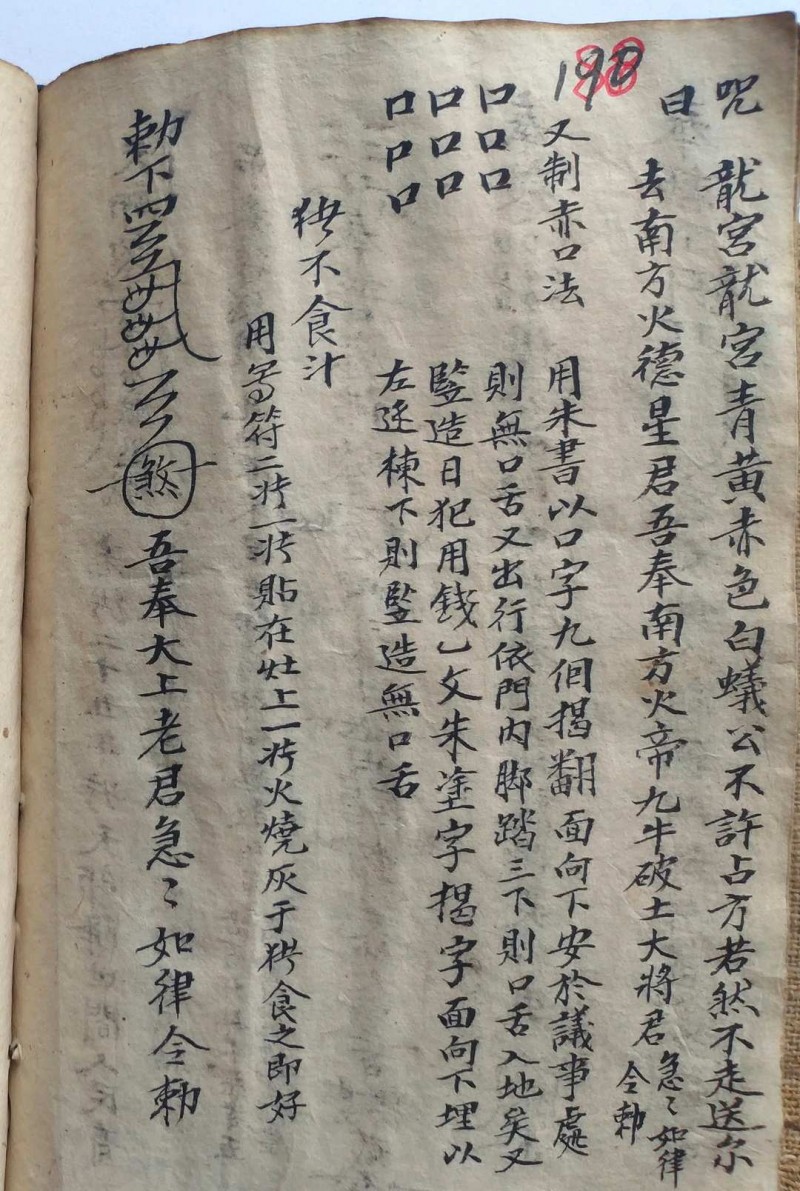 190
88
咒曰
龍宮龍宮青黃赤色白蟻公不許占方若然不走送尔
去南方火德星君吾奉南方火帝九牛破土大將君急〻如律令勅
又制赤口法
用朱書以口字九個揭翻面向下安於議事處
口口口
則無口舌又出行依門內脚踏三下則口舌入地矣又
口口口
豎造日犯用錢乙文朱塗字揭字面向下埋以
口口口
左廷棟下則豎造無口舌
不食汁
用寫符二 一 貼在灶上一 火燒灰于 食之即好
勅下四
煞
吾奉大上老君急〻如律令勅